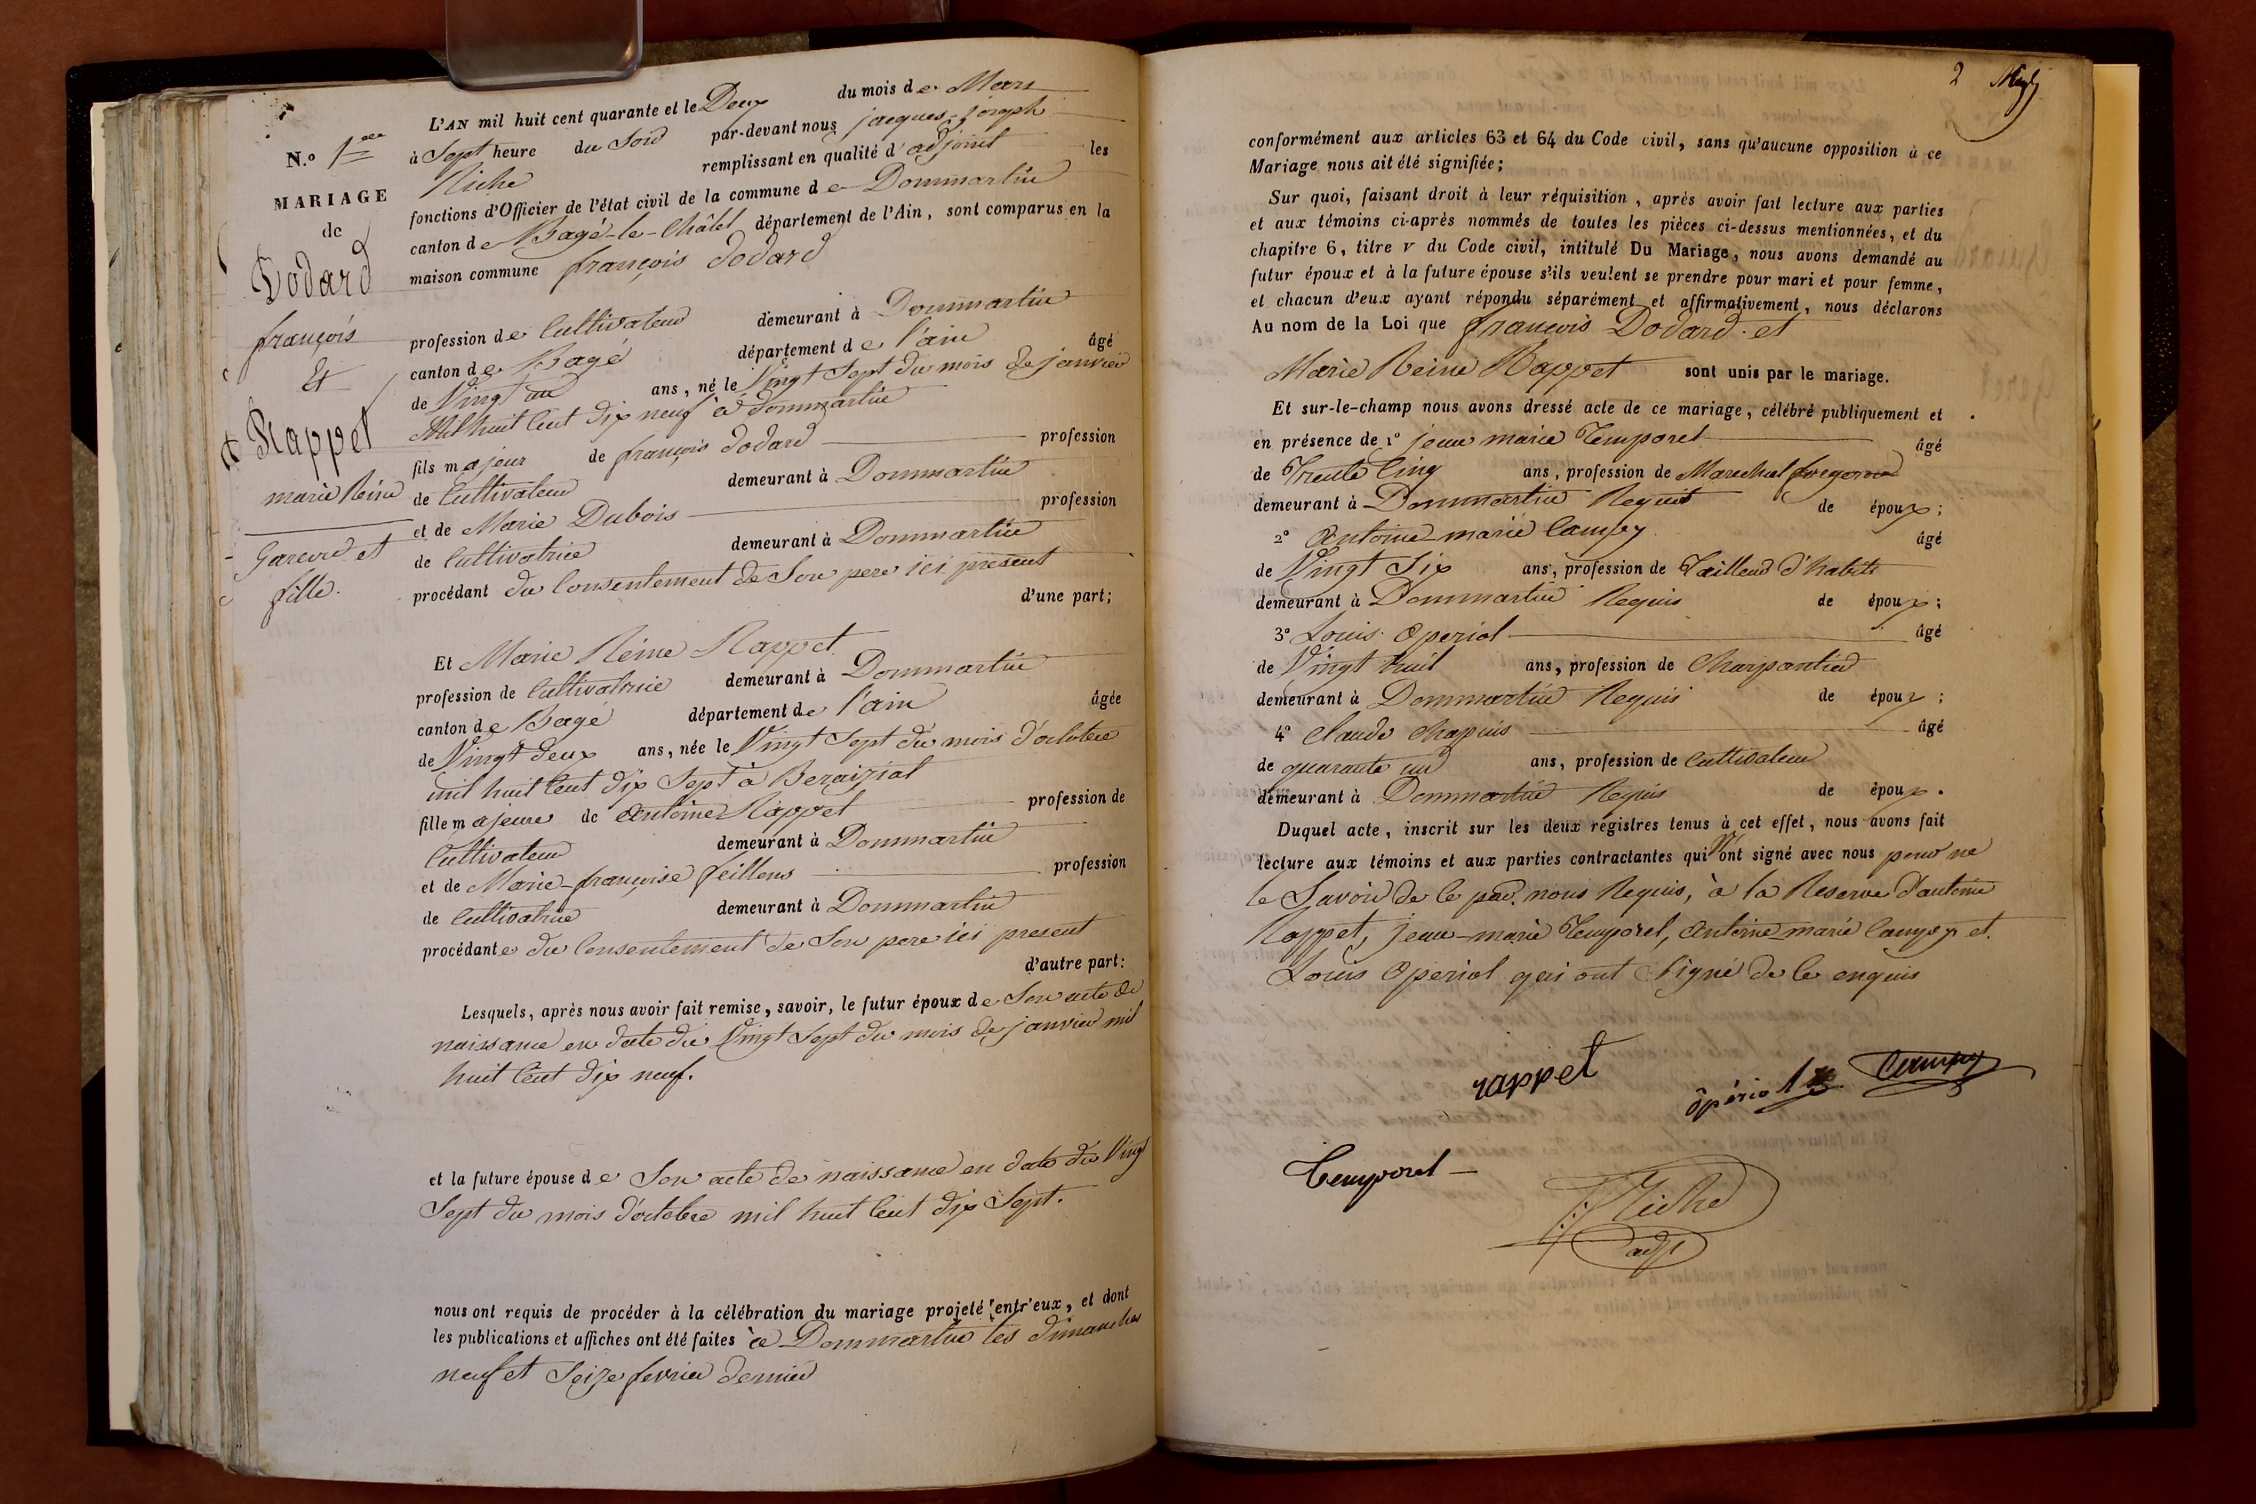 N.º 1er
MARIAGE
de
Dodard
françois
Et
Rappet
marie Reine
Garcon et
fille.
L'AN mil huit cent quarante et le Deux du mois de Mars
à Sept heure du Soir par-devant nous jacques-joseph
Riche remplissant en qualité d'adjoint les
fonctions d'Officier de l'état civil de la commune de Dommartin
canton de Bagé-le-Châtel département de l'Ain, sont comparus en la
maison commune françois dodard
profession de Cultivateur demeurant à Dommartin
canton de Bagé département de l'ain âgé
de Vingt un ans, né le Vingt Sept du mois de janvier
Mil huit Cent dix neuf à dommartin
fils majeur de françois dodard profession
de Cultivateur demeurant à Dommartin
et de Marie Dubois profession
de Cultivatrice demeurant à Dommartin
procédant du Consentement de Son pere ici présent
d'une part;
Et Marie Reine Rappet
profession de Cultivatrice demeurant à Dommartin
canton de Bagé département de l'ain âgée
de Vingt deux ans, née le Vingt Sept du mois d'octobre
mil huit Cent dix Sept à Beraizial
fille majeure de antoine Rappet profession de
Cultivateur demeurant à Dommartin
et de Marie-françoise feillens profession
de Cultivatrice demeurant à Dommartin
procédante du Consentement de Son pere ici present
d'autre part:
Lesquels, après nous avoir fait remise, savoir, le futur époux de Son acte de
naissance en date du Vingt Sept du mois de janvier mil
huit Cent dix neuf.
et la future épouse de Son acte de naissance en date du Vingt
Sept du mois d'octobre mil huit Cent dix Sept.
nous ont requis de procéder à la célébration du mariage projeté entr'eux, et dont
les publications et affiches ont été faites à Dommartin les dimanches
neuf et Seize fevrier dernier
2
conformément aux articles 63 et 64 du Code civil, sans qu'aucune opposition à ce
Mariage nous ait été signifiée;
Sur quoi, faisant droit à leur réquisition, après avoir fait lecture aux parties
et aux témoins ci-après nommés de toutes les pièces ci-dessus mentionnées, et du
chapitre 6, titre v du Code civil, intitulé Du Mariage, nous avons demandé au
futur époux et à la future épouse s'ils veulent se prendre pour mari et pour femme,
et chacun d'eux ayant répondu séparément et affirmativement, nous déclarons
Au nom de la Loi que françois Dodard et
Marie Reine Rappet sont unis par le mariage.
Et sur-le-champ nous avons dressé acte de ce mariage, célébré publiquement et
en présence de 1º jean marie Temporel âgé
de Trente Cinq ans, profession de Marechal
demeurant à Dommartin Requis de époux;
2º Antoine-marie Campy âgé
de Vingt Six ans, profession de Tailleur d'habits
demeurant à Dommartin Requis de époux;
3º Louis Operiol âgé
de Vingt huit ans, profession de Charpantier
demeurant à Dommartin Requis de époux;
4º Claude Chapuis âgé
de quarante un ans, profession de Cultivateur
demeurant à Dommartin Requis de époux.
Duquel acte, inscrit sur les deux régistres tenus à cet effet, nous avons fait
lecture aux témoins et aux parties contractantes qui n'ont signé avec nous pour ne
le Savoir de Ce par nous Requis, à la Reserve d'antoine
Rappet, jean-marie Temporel, Antoine-marie Campy et
Louis Operiol qui ont Signé de Ce enquis
rappet
ôpériol
Campy
Temporel
Riche
adjt